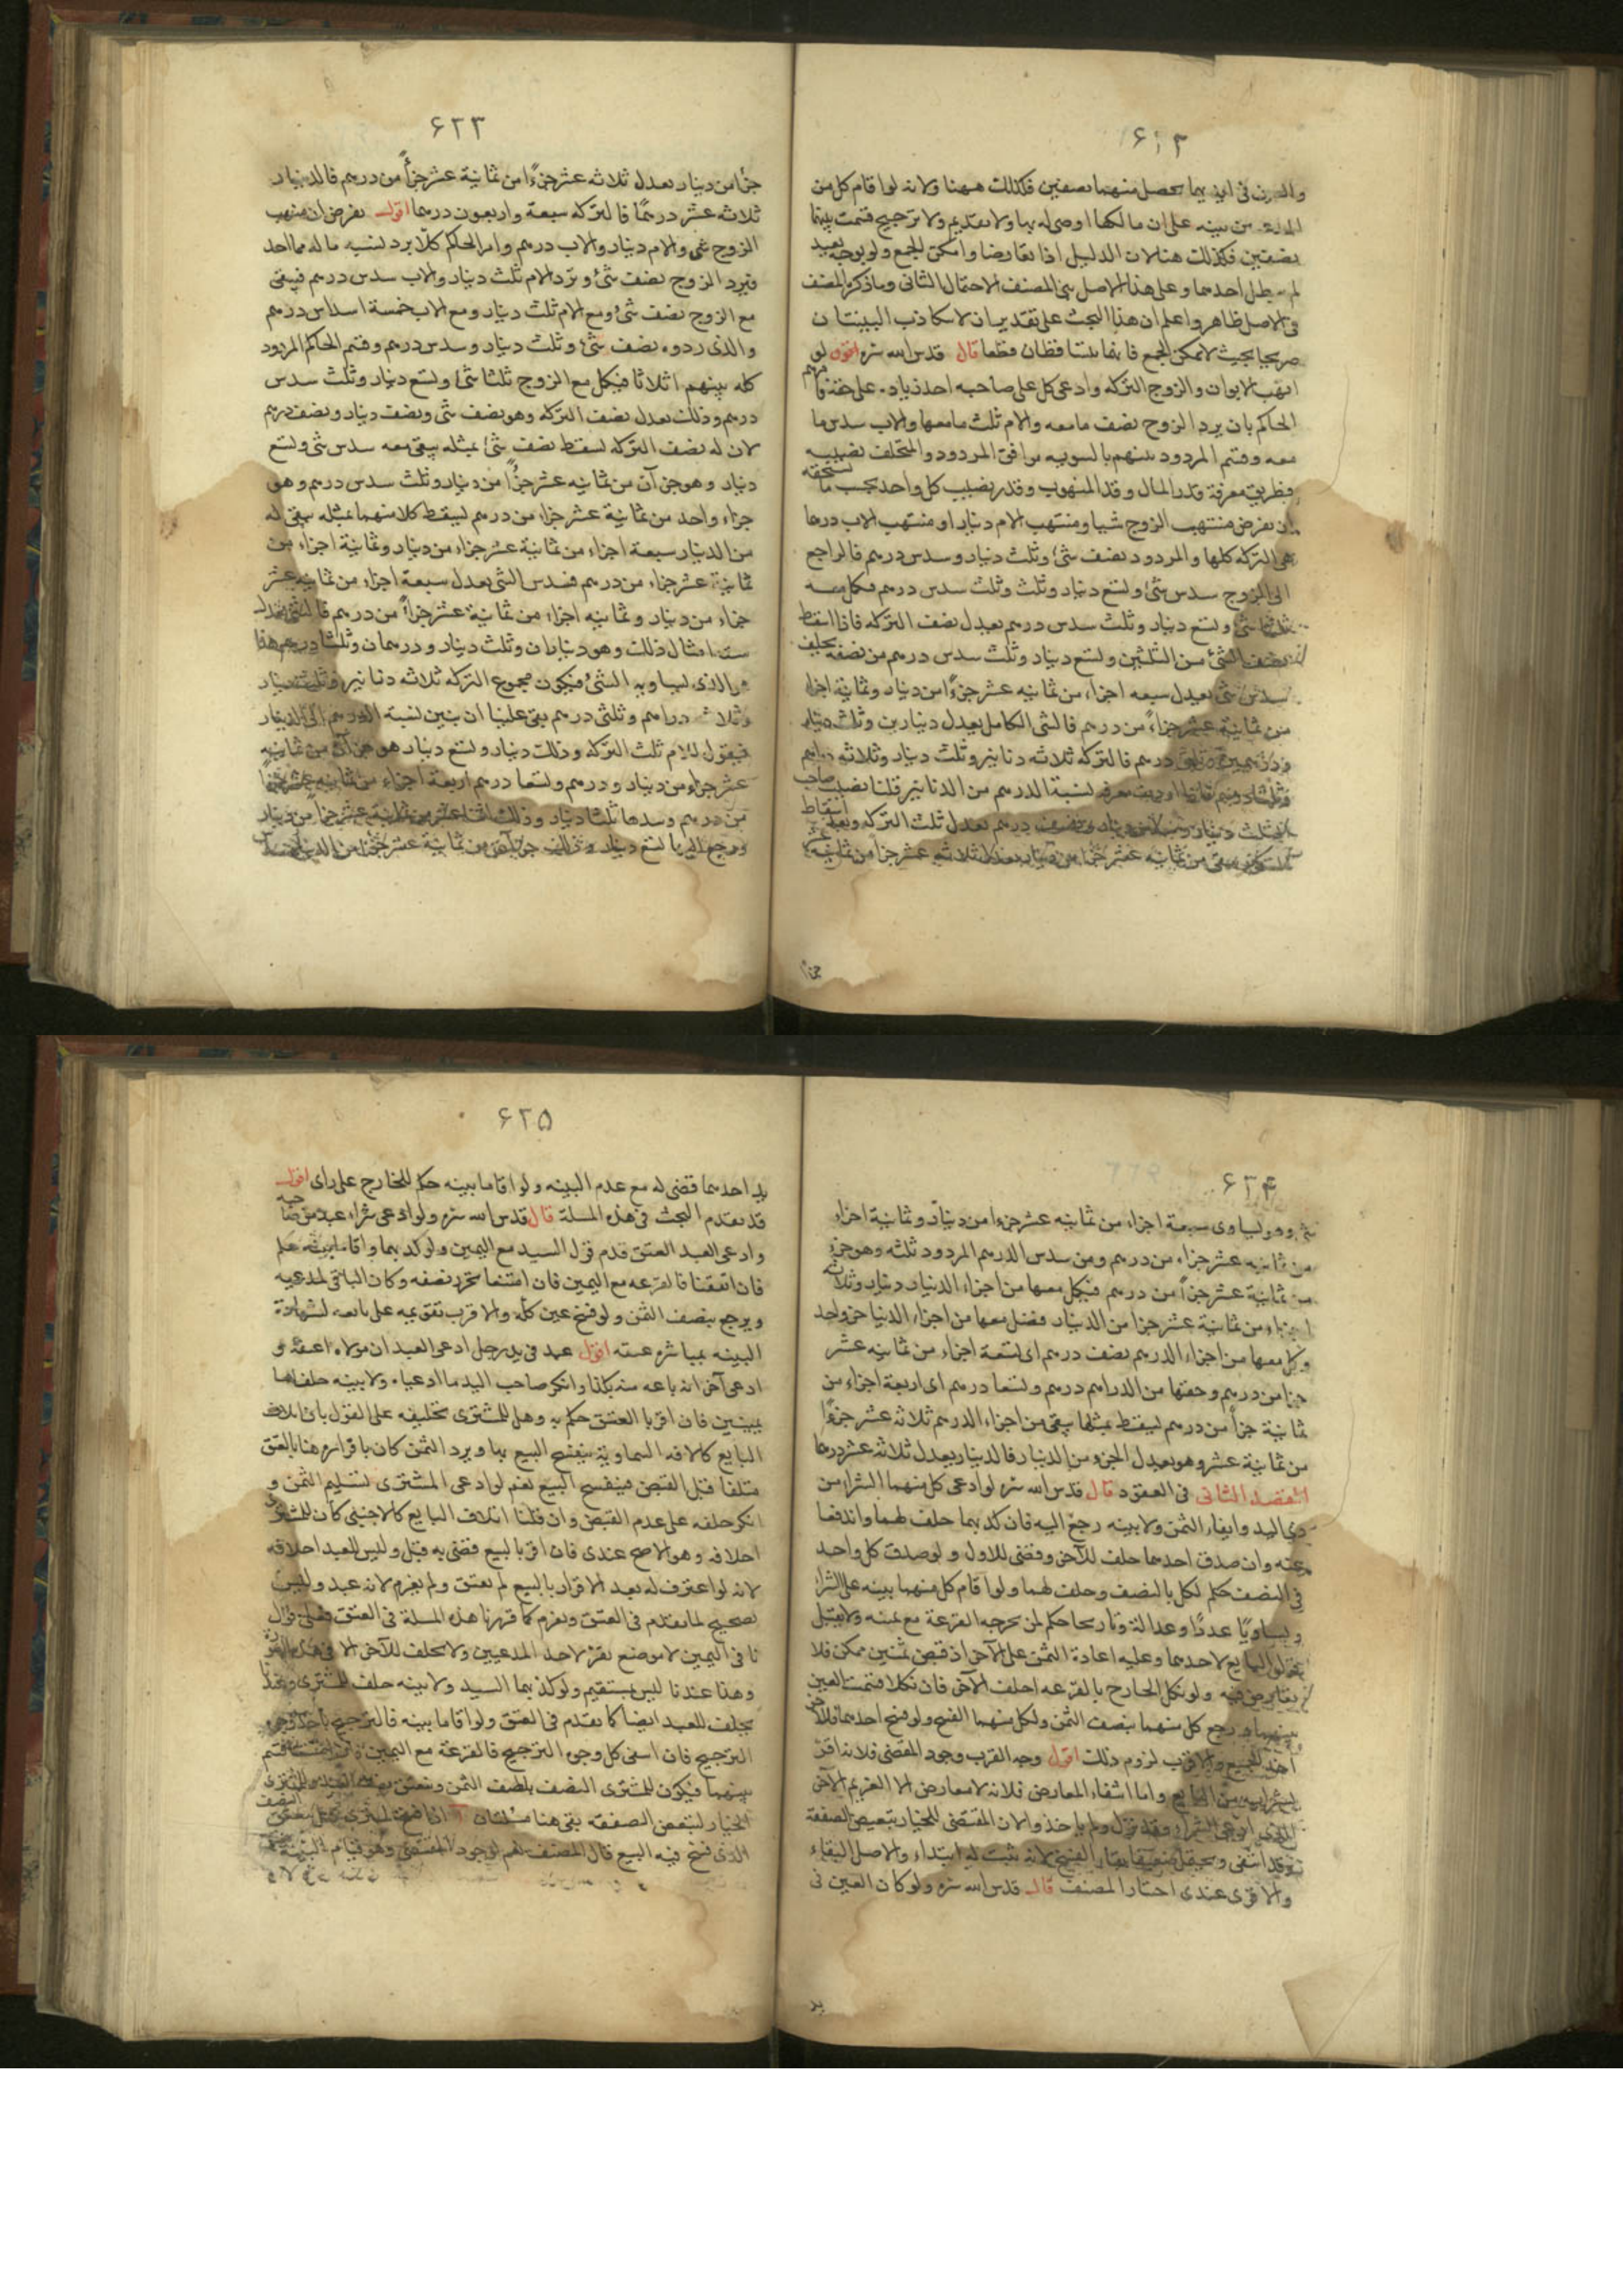 ۶۲۲
والدرن في ايديهما يحصل منهما نصفين فكذلك ههنا ولانه لو اقام كل من
بينه على ان مالكها اوصى له بها ولا تقديم ولا ترجيح قسمت بينهما
نصفين فكذلك هنا لان الدليل اذا تعارضا وامكن الجمع ولو بوجه بعيد
لم يبطل احدهما وعلى هذا الاصل بنى المصنف الاحتمال الثاني وما ذكره المصنف
في الاصل ظاهر واعلم ان هذا البحث على تقدير ان لا تكاذب البينتان
صريحا بحيث لا يمكن الجمع فانهما يتساقطان قطعا قال قدس الله سره لو
انتهب الابوان والزوج التركه وادعى كل على صاحبه احد زياده على حقه فامرهم
الحاكم بان يرد الزوج نصف ما معه والام ثلث ما معها والاب سدس ما
معه وقسم المردود بينهم بالسويه فوافق المردود والمتخلف نصيب
فطريق معرفة قدر المال وقدر المنهوب وقدر نصيب كل واحد بحسب ما يستحقه
ان نفرض منتهب الزوج شيا ومنتهب الام دينارا ومنتهب الاب درهما
هى التركه كلها والمردود نصف شئ وثلث دينار وسدس درهم فالراجع
الى الزوج سدس شئ وتسع دينار وثلث سدس درهم فكمل معه
ثلثا شئ وتسع دينار وثلث سدس درهم يعدل نصف التركه فاذا اسقط
نصف الشئ من الثلثين وتسع دينار وثلث سدس درهم من نصفه يخلف
سدس شئ يعدل سبعه اجزاء من ثمانيه عشر جزءًا من دينار وثمانية اجزاء
من ثمانية عشر جزاءً من درهم فالشئ الكامل يعدل دينارين وثلث دينار
ودرهمين وثلثى درهم فالتركه ثلاثه دنانير وثلث دينار وثلاثه دراهم
وثلثا درهم فاذا اردت معرفه نسبة الدرهم من الدنانير قلنا نصيب صاحب
ثلث دينار درهم يعدل ثلث التركه وبعد اسقاط
يبقى من ثمانيه عشر جزءا من دينار يعدل ثلاثه عشر جزأ من ثمانيه
جزءًا
۶۲۳
جزءًا من دينار يعدل ثلاثه عشر جزءًا من ثمانية عشر جزءًا من درهم فالدينار
ثلاثه عشر درهمًا فالتركه سبعة واربعون درهما اقول نفرض ان منهب
الزوج شئ والام دينار والاب درهم وامر الحاكم كلا برد نسبه ماله مما اخذ
فيرد الزوج نصف شئ وترد الام ثلث دينار والاب سدس درهم فيبقى
مع الزوج نصف شئ ومع الام ثلثا دينار ومع الاب خمسة اسداس درهم
والذى ردوه نصف شئ وثلث دينار وسدس درهم وقسم الحاكم المردود
كله بينهم اثلاثا فيكمل مع الزوج ثلثا شئ وتسع دينار وثلث سدس
درهم وذلك يعدل نصف التركه وهو نصف شئ ونصف دينار ونصف درهم
لان له نصف التركه يسقط نصف شئ بمثله يبقى معه سدس شئ وتسع
دينار وهو جزءآن من ثمانيه عشر جزءًا من دينار وثلث سدس درهم وهو
جزاء واحد من ثمانية عشر جزاء من درهم يسقط كلا منهما بمثله يبقى له
من الدينار سبعة اجزاء من ثمانية عشر جزاء من دينار وثمانية اجزاء من
ثمانية عشر جزاء من درهم فسدس الشئ يعدل سبعة اجزاء من ثمانيه عشر
جزاء من دينار وثمانيه اجزاء من ثمانية عشر جزاءً من درهم فالشئ يعدل
ستة امثال ذلك وهو ديناران وثلث دينار ودرهمان وثلثا درهم هذا
هو الذى يساويه الشئ فيكون مجموع التركه ثلاثه دنانير وثلث دينار
وثلاث دراهم وثلثى درهم بقى علينا ان نبين نسبة الدرهم الى الدينار
فيقول للام ثلث التركه وذلك دينار وتسع دينار هو جزءان من ثمانيه
عشر جزءًا من دينار ودرهم وتسعا درهم اربعة اجزاء من ثمانيه عشر جزءا
من درهم ومعها ثلثا دينار وذلك اثنا عشر من ثمانية عشر جزءا من دينار
ويرجع اليها تسع دينار وذلك جزءان من ثمانية عشر جزءا من الدينار
۶۲۴
شئ وهو يساوى سبعة اجزاء من ثمانيه عشر جزءا من دينار وثمانية اجزاء
من ثمانيه عشر جزاء من درهم ومن سدس الدرهم المردود ثلثه وهو جزء
من ثمانية عشر جزأ من درهم فيكمل معها من اجزاء الدينار دينار وثلاثه
اجزاء من ثمانية عشر جزا من الدينار فضل معها من اجزاء الدينا جزء واحد
وكل معها من اجزاء الدرهم نصف درهم اى تسعة اجزاء من ثمانيه عشر
جزا من درهم وحقها من الدراهم درهم وتسعا درهم اى اربعة اجزاء من
ثمانية جزأ من درهم يسقط بمثلها يبقى من اجزاء الدرهم ثلاثه عشر جزءًا
من ثمانية عشر وهو يعدل الجزء من الدينار فالدينار يعدل ثلاثه عشر درهما
الفصل الثاني في العقود قال قدس الله سره لو ادعى كل منهما الشراء من
ذى اليد وايفاء الثمن ولا بينه رجع اليه فان كذبهما حلف لهما واندفعا
عنه وان صدق احدهما حلف للآخر وقضى للاول ولو صدق كل واحد
في النصف حكم لكل بالنصف وحلف لهما ولو اقام كل منهما بينه على الشراء
وتساويا عددًا وعدالة وتاريخا حكم لمن يخرجه القرعة مع يمينه ولا يقبل
قول البايع لاحدهما وعليه اعادة الثمن على الآخر اذ قبض ثمنين ممكن فلا
تعارض فيه ولو نكل الخارج بالقرعه احلف الآخر فان نكلا قسمت العين
بينهما ورجع كل منهما بنصف الثمن ولكل منهما الفسخ ولو فسخ احدهما فللاخر
اخذ الجميع والاقرب لزوم ذلك اقول وجه القرب وجود المقتضى فلانه اقر
بشرائه من البايع واما انتفاء المعارض فلانه لا معارض الا الغريم الآخر
المدعى الشراء وقد نزل ولم ياخذ ولان المقتضى للخيار تبعيض الصفقة
وقد انتفى ويحتمل الفسخ لانه يثبت له ابتداء والاصل البقاء
والاقوى عندى اختيار المصنف قال قدس الله سره ولو كان العين في
يد
۶۲۵
يد احدهما قضى له مع عدم البينه ولو اقاما بينه حكم للخارج على راى اقول
قد تقدم البحث في هذه المسلة قال قدس الله سره ولو ادعى شراء عبد من صاحبه
وادعى العبد العتق قدم قول السيد مع اليمين ولو كذبهما واقاما بينه حكم
فان اتفقتا فالقرعه مع اليمين فان امتنعا تحرر نصفه وكان الباقى لمدعيه
ويرجع بنصف الثمن ولو فسخ عتق كله والاقرب تقويمه على بائعه لشهادة
البينه بمباشره عتقه اقول عبد في يد رجل ادعى العبد ان مولاه اعتقه و
ادعى آخر انه باعه منه بكذا وانكر صاحب اليد ما ادعياه ولا بينه حلف لهما
يمينين فان اقر بالعتق حكم به وهل للمشترى تحليفه على القول بان اتلاف
البايع كالافه السماوية ينفسخ البيع بها ويرد الثمن كان باقراره هنا بالعتق
متلفا قبل القبض فينفسخ البيع نعم لو ادعى المشترى تسليم الثمن و
انكر حلفه على عدم القبض وان قلنا اتلاف البايع كالاجنبى كان للمشترى
احلافه وهو الاصح عندى فان اقر بالبيع قضى به قبل وليس للعبد احلافه
لانه لو اعترف له بعد الاقرار بالبيع لم يعتق ولم يغرم لانه عبد وليس
بصحيح لما تقدم في العتق ويغرم كما قررنا هذه المسلة في العتق وهل
ثانى اليمين لا موضع يقر لاحد المدعيين ولا يحلف للآخر الا في هذه
وهذا عندنا ليس بمستقيم ولو كذبهما السيد ولا بينه حلف للمشترى وعندنا
يحلف للعبد ايضا كما تقدم في العتق ولو اقاما بينه فالترجيح باحد وجوه
الترجيح فان انتفى كل وجوه الترجيح فالقرعة مع اليمين فان امتنعا قسم
بينهما فيكون للمشترى النصف بنصف الثمن ويعتق وللمشترى
الخيار لتبعض الصفقه بقى هنا مسئلتان
الذى فسخ فيه البيع قال المصنف نعم لوجود المقتضى وهو قيام البينه